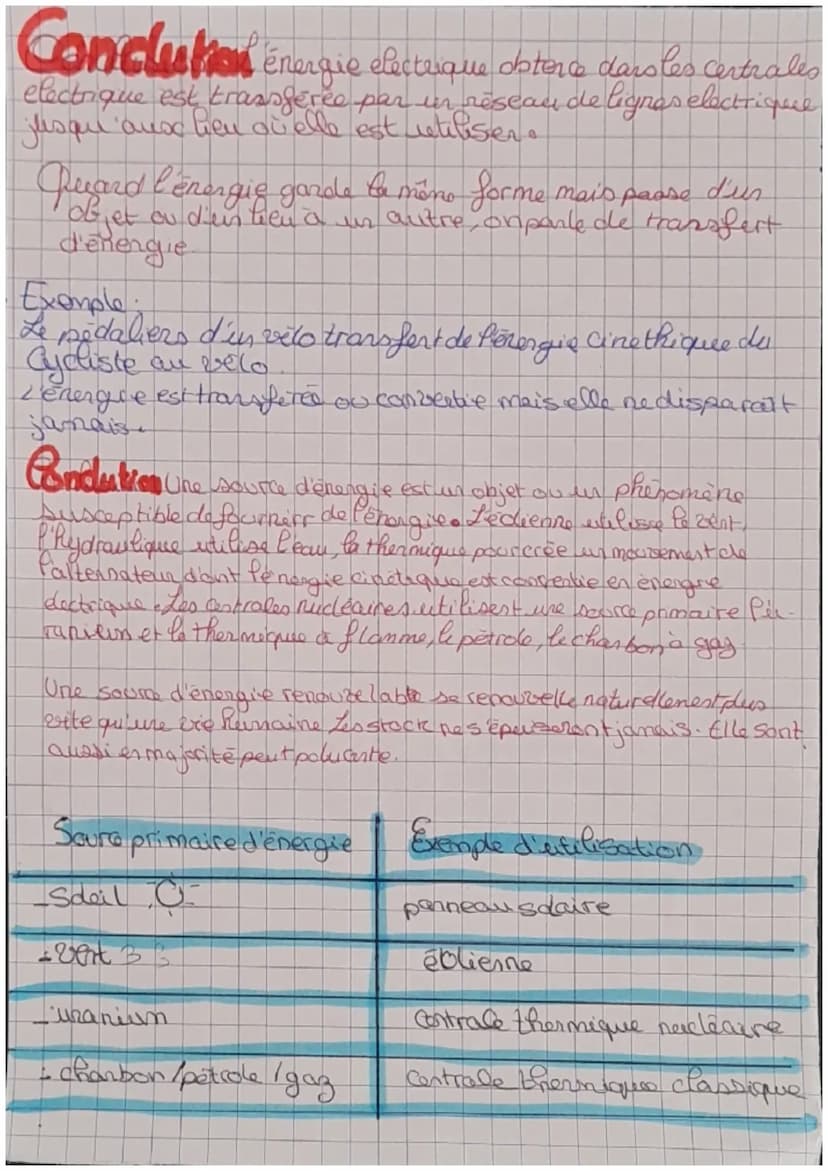 Conclution l'énergie electrique obtence dans les centrales
electrique est transférée par un réseau de lignes electrique
jusqu'aux lieu où elle est utiliser.
Quand l'énergie garde la même forme mais passe d'un
objet ou d'un lieu à un autre, on parle de transfert
d'énergie
Exemple:
Le pédaliers d'un vélo transfert de l'énergie cinethique du
Cycliste au vélo.
L'énergie est transférée ou convertie mais elle ne disparaît
jamais.
Conclution Une source d'énergie est un objet ou un phénomène
susceptible de fournir de l'énergie. L'éolienne utilise le vent,
l'hydraulique utilise l'eau, la thermique pour crée un mouvement de
l'alternateur, d'ont l'énergie cinétique est convertie en énergie
électrique. Les centrales nucléaires utilisent une source primaire l'u-
ranium et la thermique a flamme, le pétrole, le charbon à gaz
Une source d'énergie renouvelable se renouvelle naturellement plus
vite qu'une vie humaine Les stock ne s'épuiseront jamais. Elle sont
aussi en majorité peut poluante.
Source primaire d'énergie Exemple d'utilisation
- Soleil panneau solaire
- vent éolienne
- uranium Centrale thermique nucléaire
- charbon/pétrole/gaz Centrale thermique classique